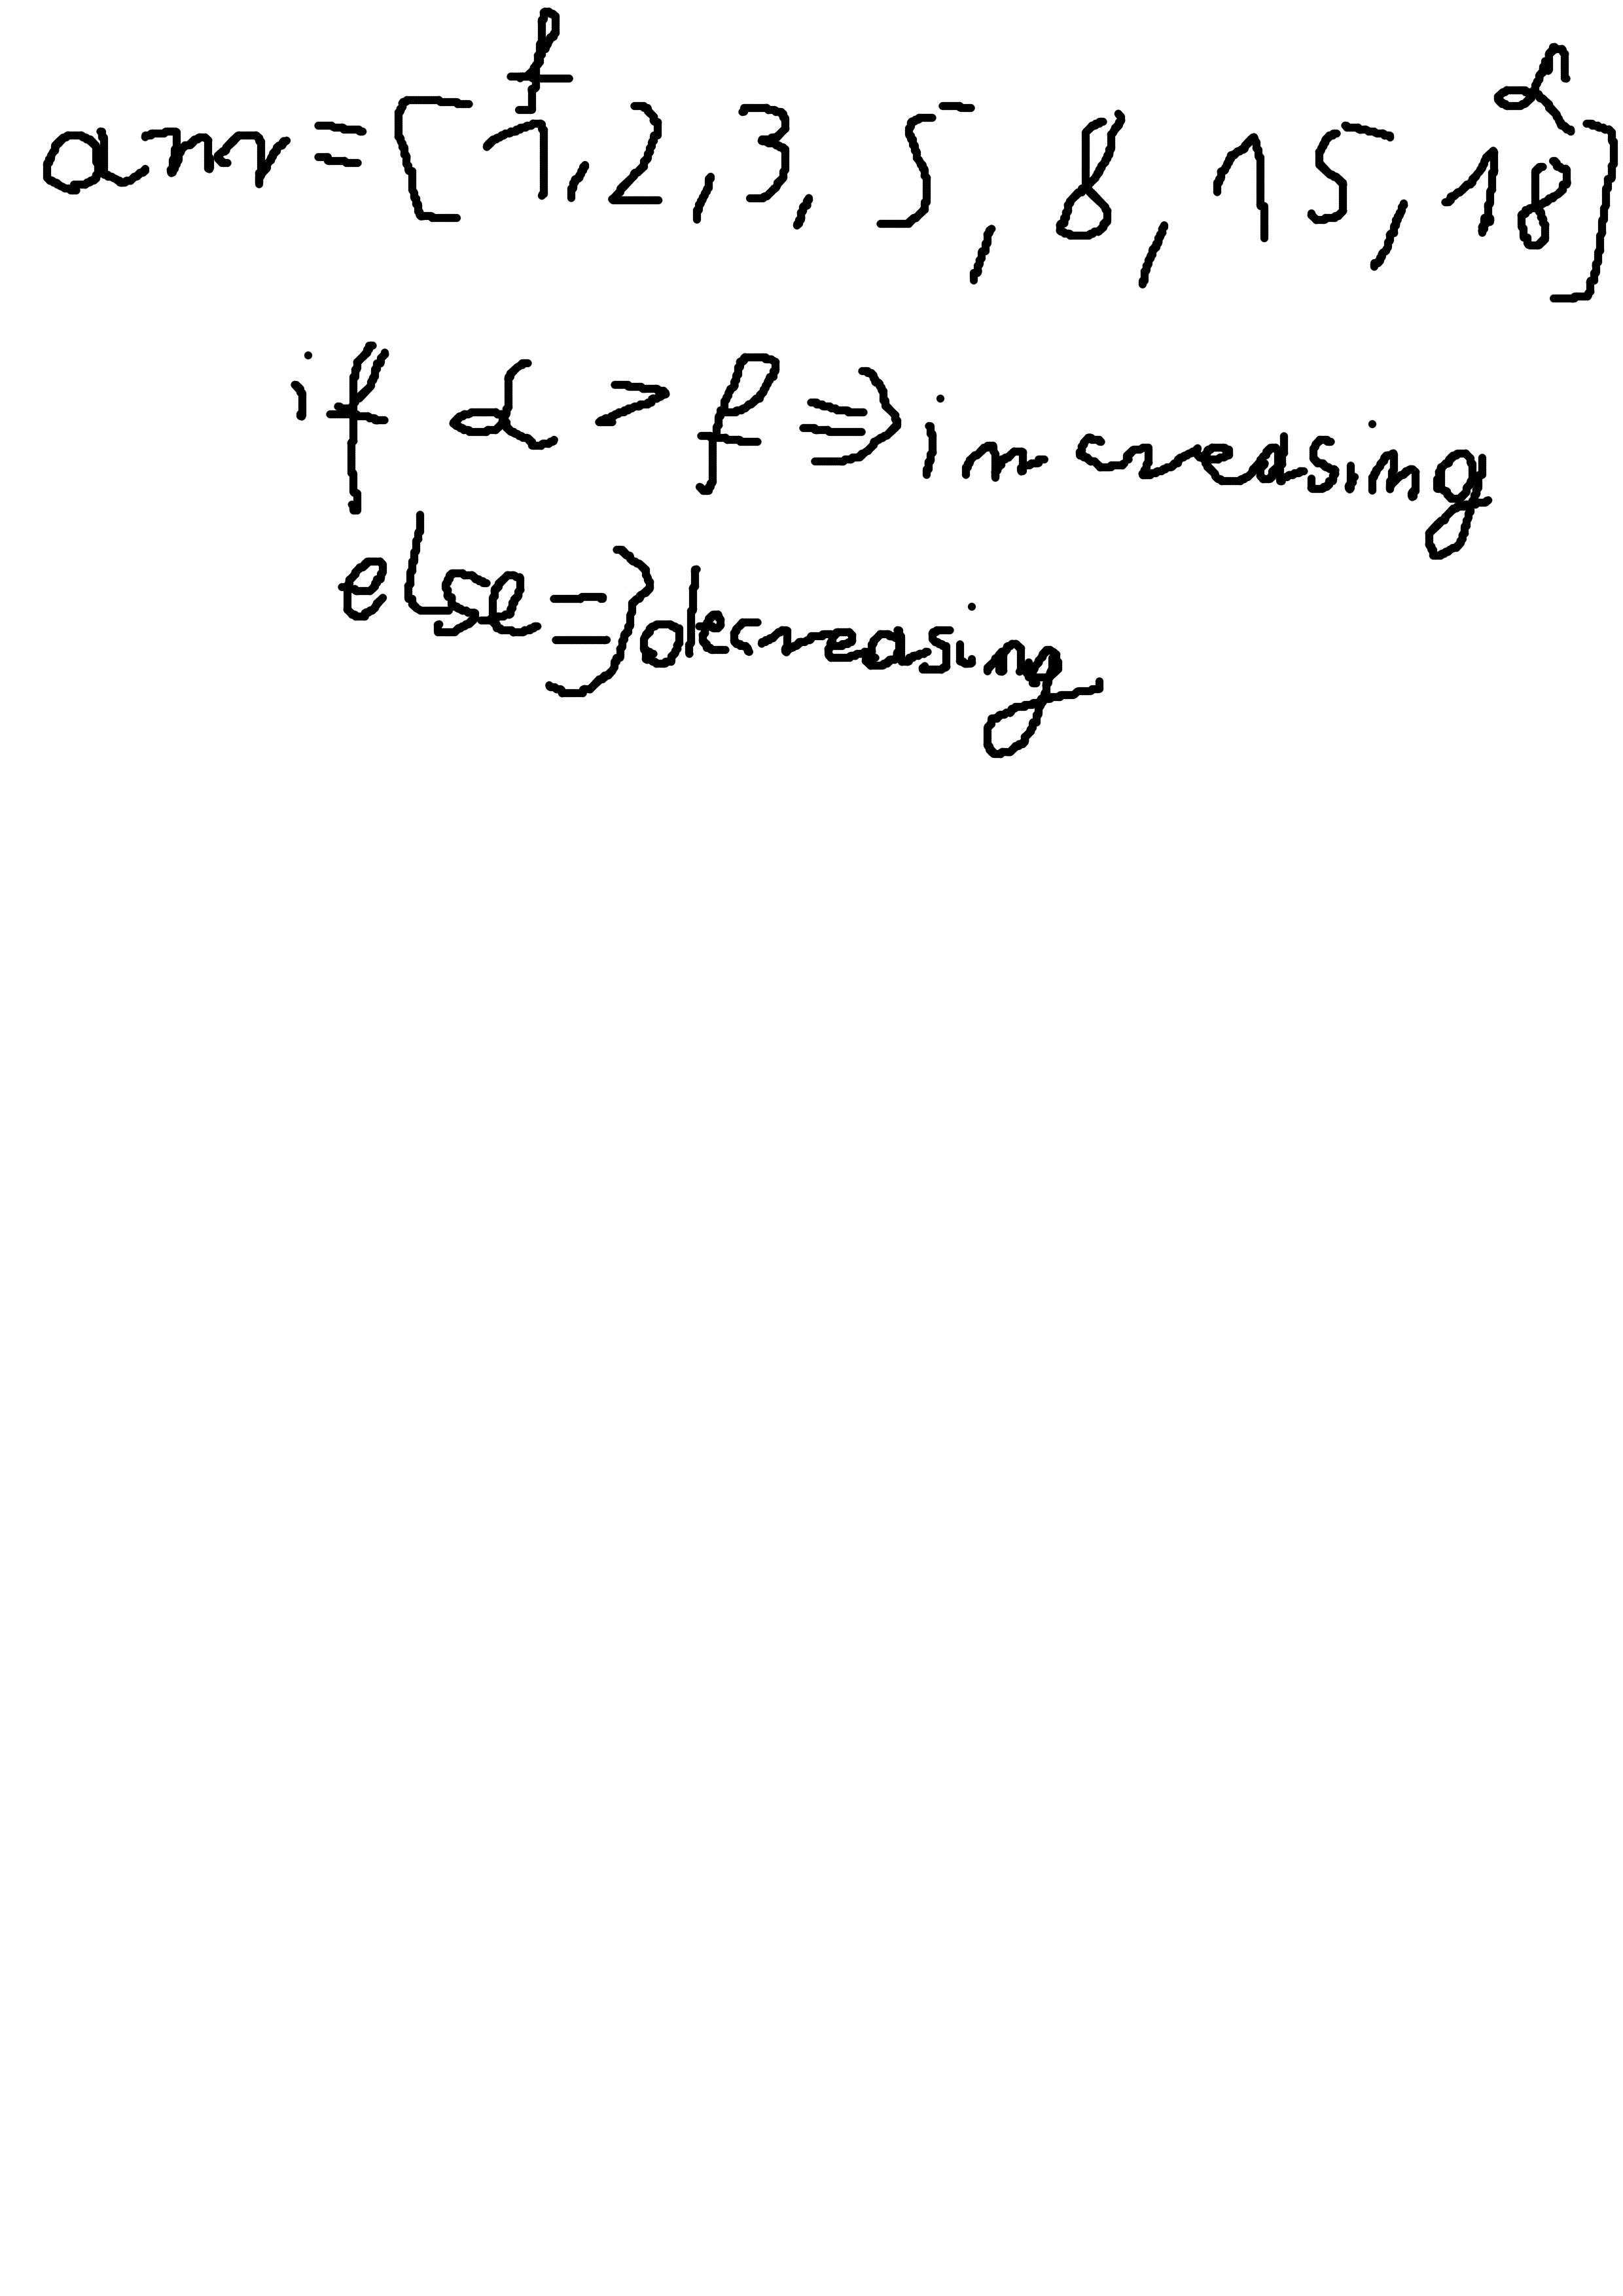 f l
arr = [1, 2, 3, 5, 8, 15, 18]
if l > f => increasing
else => decreasing